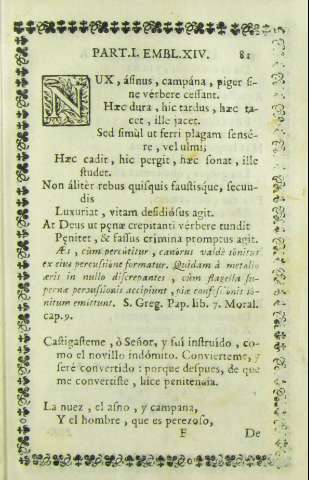 PART. I. EMBL. XIV. 81
NUX, ásinus, campána, piger si-
ne vérbere cessant.
Hæc dura, hic tardus, hæc ta-
cet, ille jacet.
Sed simùl ut ferri plagam sensé-
re, vel ulmi;
Hæc cadit, hic pergit, hæc sonat, ille
studet.
Non áliter rebus quisquis faustisque, secun-
dis
Luxuriat, vitam desidiósus agit.
At Deus ut pęnæ crepitanti vérbere tundit
Pęnitet, & fassus crimina promptus agit.
Æs, cùm percútitur, canórus valdè sónitus
ex eius percussióne formatur. Quidam à metallo
æris in nullo discrepantes, cùm flagella su-
pernæ percussiónis accípiunt, piæ confessiónis só-
nitum emittunt. S. Greg. Pap. lib. 7. Moral.
cap. 9.
Castigasteme, ò Señor, y fuí instruído, co-
mo el novillo indómito. Convierteme, y
seré convertido: porque despues, de que
me convertiste, hice penitencia.
La nuez, el asno, y campana,
Y el hombre, que es perezoso,
F De